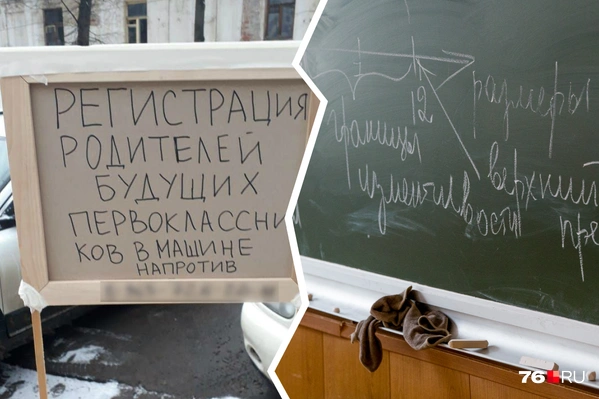 РЕГИСТРАЦИЯ
РОДИТЕЛЕЙ
БУДУЩИХ
ПЕРВОКЛАССНИ
КОВ В МАШИНЕ
НАПРОТИВ
12
размеры
границы
изменчивости
верхний
пре
76.RU